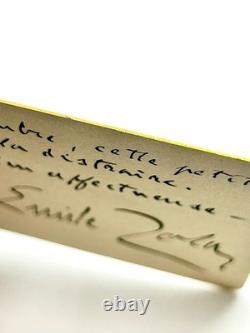 cette petit
la distraire.
affectueuse -
Emile Zola
ebay